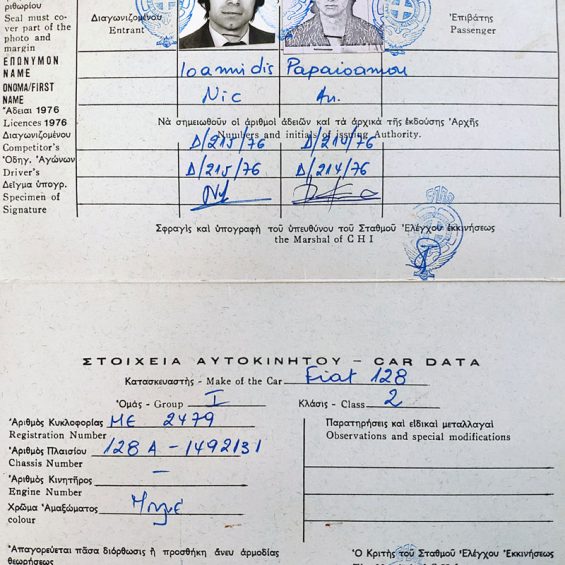 ριθωρίου
Seal must co-
ver part of the
photo and
margin
Διαγωνιζομένου
Entrant
Ἐπιβάτης
Passenger
ΕΠΩΝΥΜΟΝ
NAME
Ioannidis Papaioannou
ΟΝΟΜΑ/FIRST
NAME
Nic An.
Ἄδειαι 1976
Licences 1976
Νὰ σημειωθοῦν οἱ ἀριθμοὶ ἀδειῶν καὶ τὰ ἀρχικὰ τῆς ἐκδούσης Ἀρχῆς
Numbers and initials of issuing Authority.
Διαγωνιζομένου
Competitor's
Δ/215/76 Δ/214/76
Ὁδηγ. Ἀγώνων
Driver's
Δ/215/76 Δ/214/76
Δεῖγμα ὑπογρ.
Specimen of
Signature
Σφραγὶς καὶ ὑπογραφὴ τοῦ ὑπευθύνου τοῦ Σταθμοῦ Ἐλέγχου ἐκκινήσεως
the Marshal of CHI
ΣΤΟΙΧΕΙΑ ΑΥΤΟΚΙΝΗΤΟΥ – CAR DATA
Κατασκευαστὴς - Make of the Car Fiat 128
Ὁμὰς - Group I Κλάσις - Class 2
Ἀριθμὸς Κυκλοφορίας ME 2479
Registration Number
Ἀριθμὸς Πλαισίου 128 A – 1492131
Chassis Number
Ἀριθμὸς Κινητῆρος –
Engine Number
Χρῶμα Ἁμαξώματος Μπλέ
colour
Παρατηρήσεις καὶ εἰδικαὶ μεταλλαγαὶ
Observations and special modifications
Ἀπαγορεύεται πᾶσα διόρθωσις ἢ προσθήκη ἄνευ ἁρμοδίας
θεωρήσεως
Ὁ Κριτὴς τοῦ Σταθμοῦ Ἐλέγχου Ἐκκινήσεως